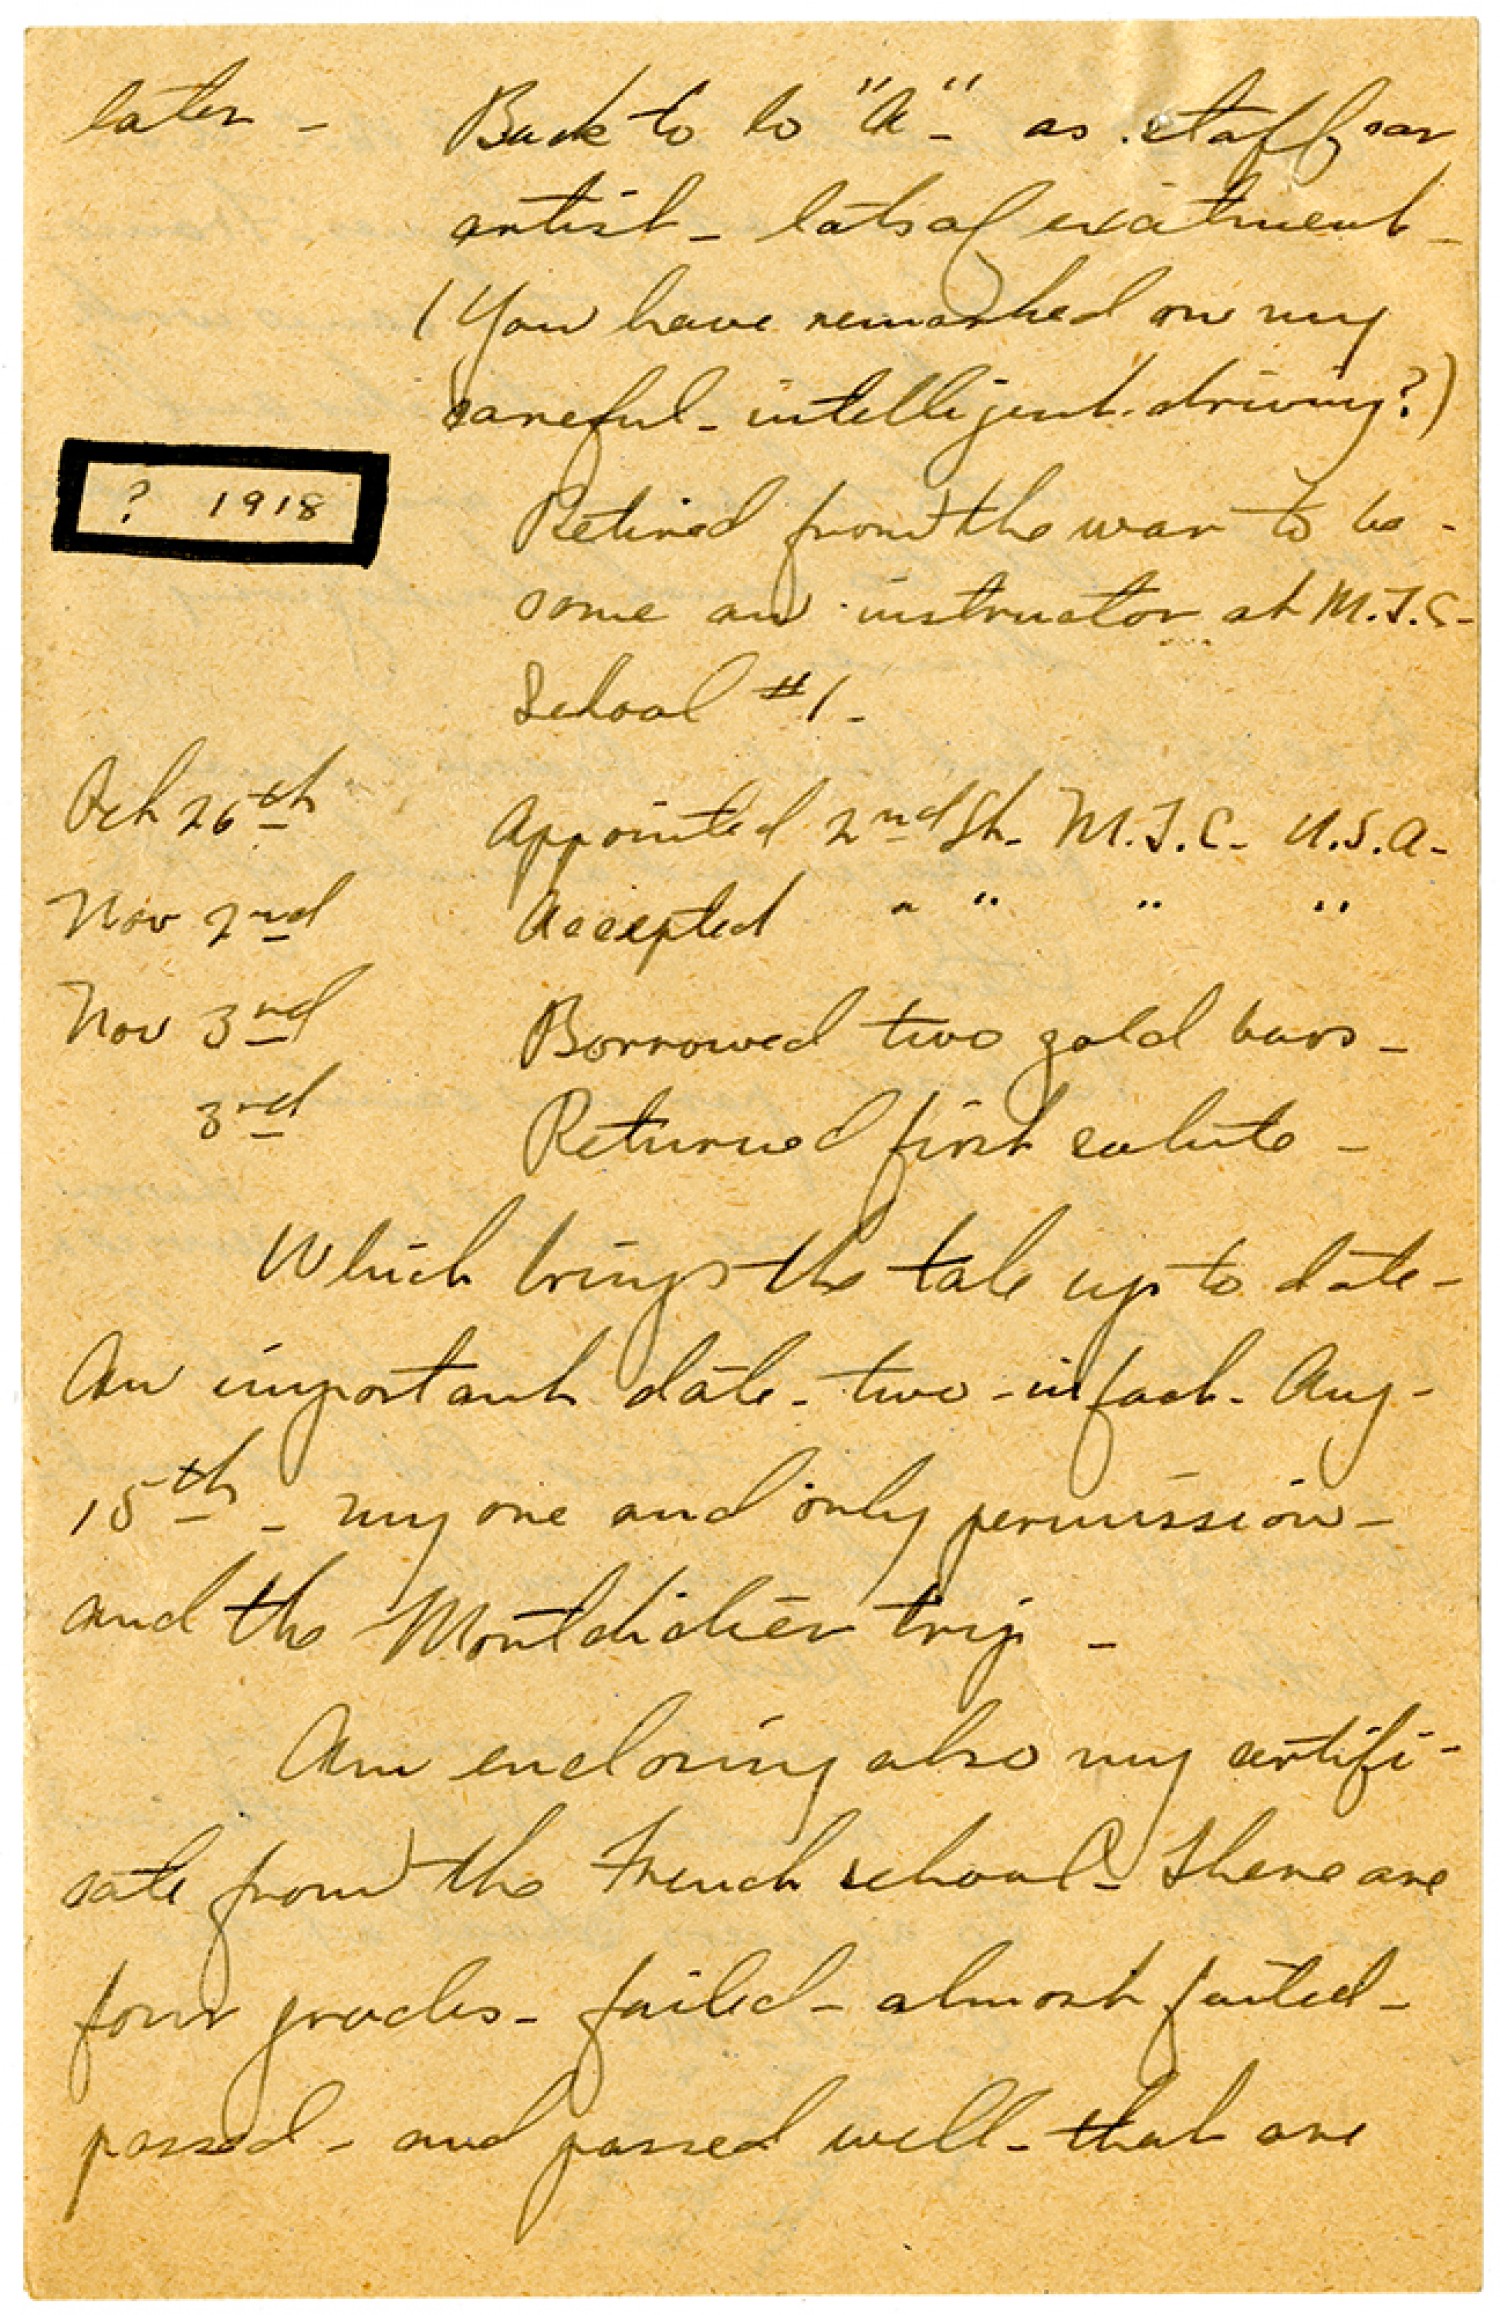 later - Back to Co "A" - as staff car
artist - lots of excitment -
(You have remarked on my
careful - intelligent driving?)
? 1918 Retired from the war to be -
come an instructor at M.T.C. -
School #1 -
Oct 26th Appointed 2nd Lt. M.T.C. - U.S.A. -
Nov 2nd Accepted " " " "
Nov 3rd Borrowed two gold bars -
3rd Returned first salute -
Which brings the tale up to date -
An important date - two - in fact - Aug -
15th - my one and only permission -
and the Montdidier trip -
Am enclosing also my certifi -
cate from the French school - There are
four grades - failed - almost failed -
passed - and passed well - that are